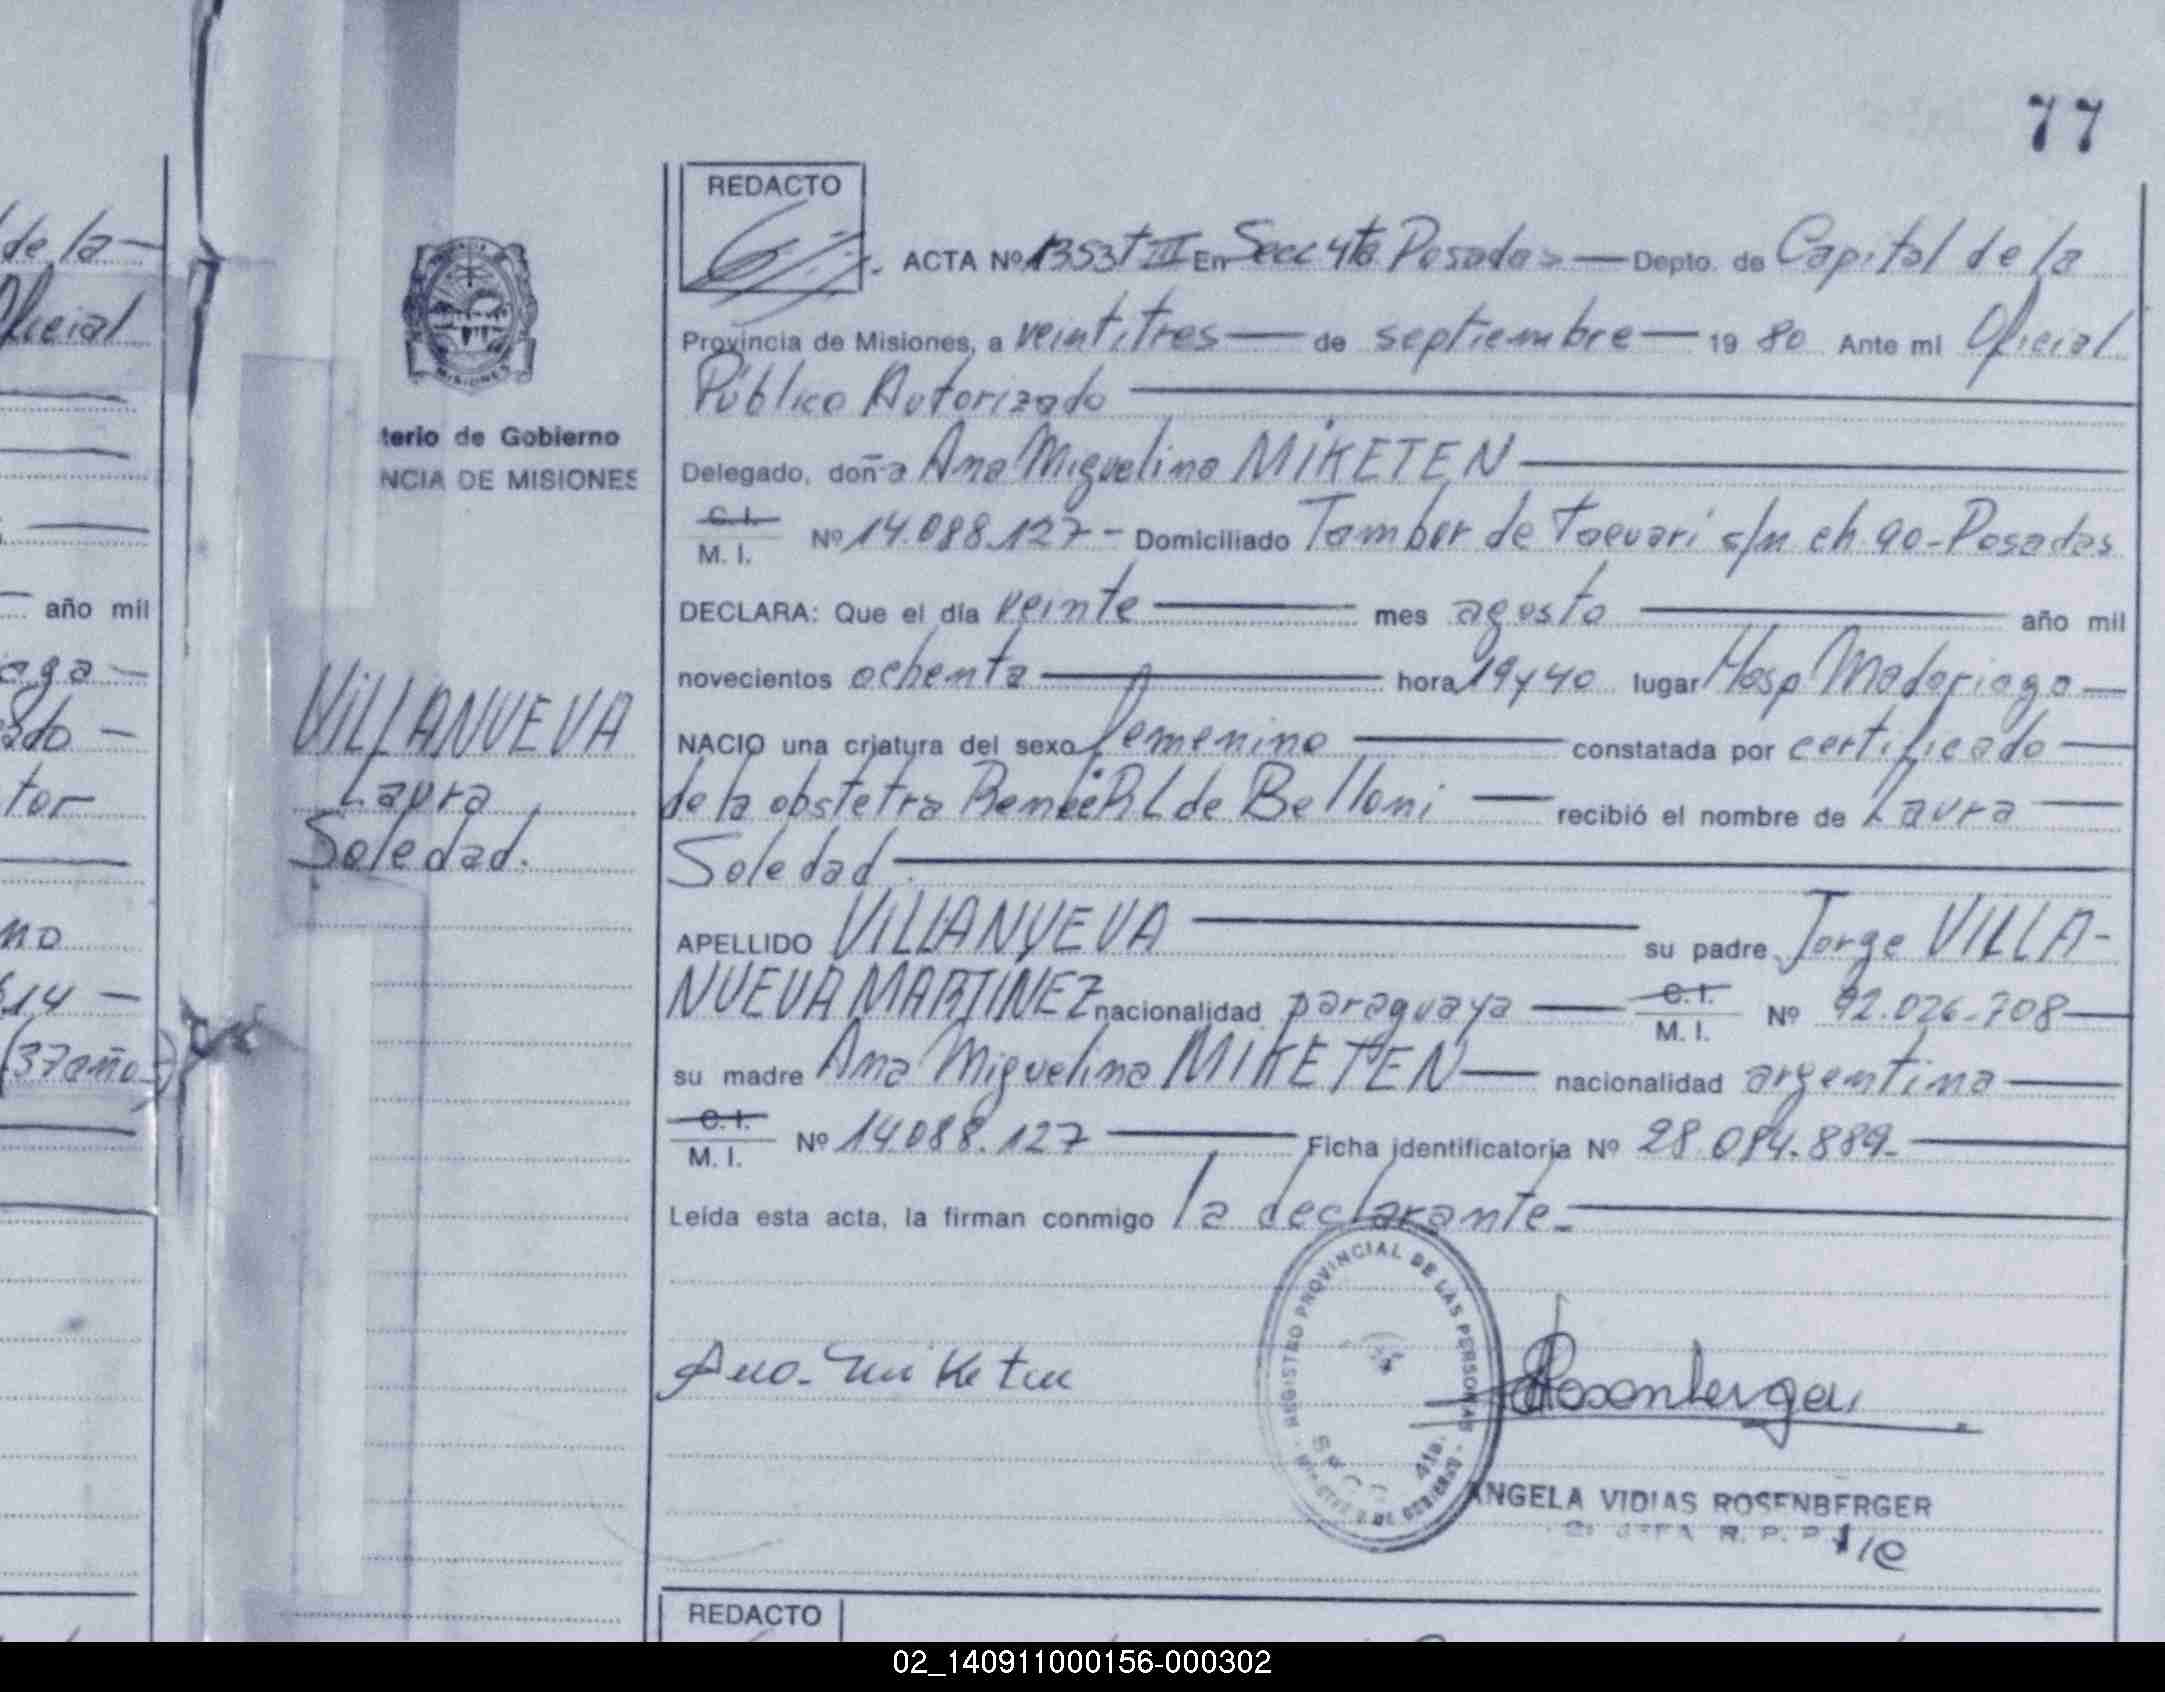 77
REDACTO
ACTA Nº 1353 t III En Secc 4ta Posadas — Depto. de Capital de la
Provincia de Misiones, a veintitres — de septiembre — 19 80 Ante mi Oficial
Público Autorizado
Delegado, doña Ana Miguelina MIKETEN
C. I.
M. I. Nº 14.088.127 - Domiciliado Tambor de Tacuari s/n ch 90 - Posadas
DECLARA: Que el día veinte — mes agosto — año mil
novecientos ochenta — hora 19 y 40 lugar Hosp Madariaga —
NACIO una criatura del sexo femenino — constatada por certificado —
de la obstetra R L de Belloni — recibió el nombre de Laura —
Soledad.
APELLIDO VILLANUEVA — su padre Jorge VILLA-
NUEVA MARTINEZ nacionalidad paraguaya — C. I.
M. I. Nº 92.026.708 —
su madre Ana Miguelina MIKETEN — nacionalidad argentina —
C. I.
M. I. Nº 14.088.127 — Ficha identificatoria Nº 28.084.889.-
Leída esta acta, la firman conmigo la declarante.
Ana Miketen
Rosenberger
REGISTRO PROVINCIAL DE LAS PERSONAS
ANGELA VIDIAS ROSENBERGER
terio de Gobierno
NCIA DE MISIONES
VILLANUEVA
Laura
Soledad.
de la —
Oficial
año mil
aga —
ado —
tor
no
14 —
(37 años)
REDACTO
02_140911000156-000302